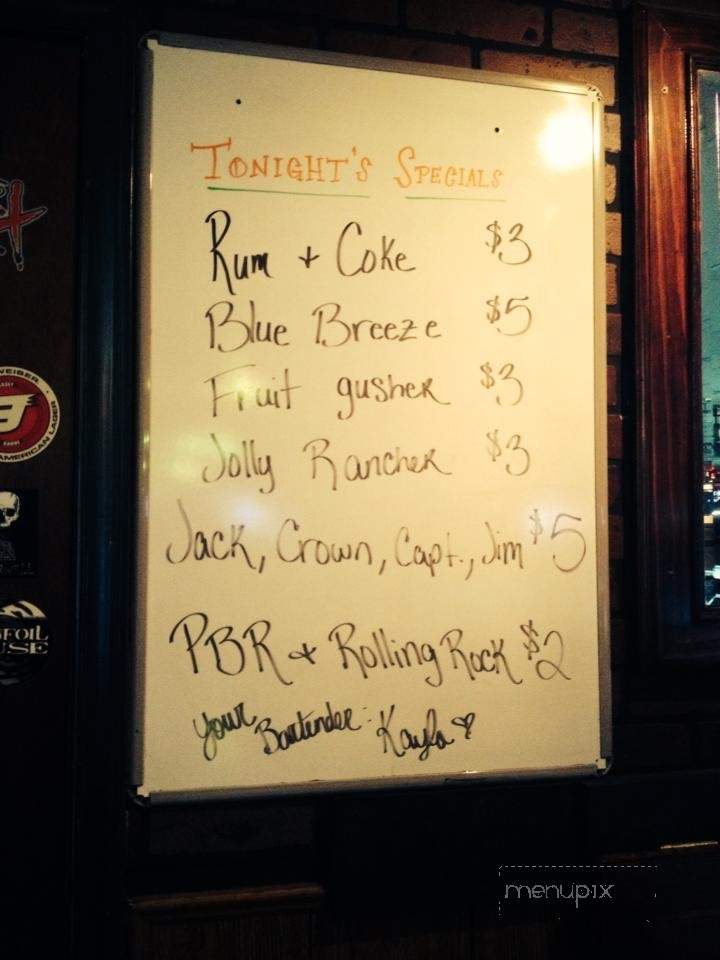 TONIGHT'S SPECIALS
Rum + Coke $3
Blue Breeze $5
Fruit gusher $3
Jolly Rancher $3
Jack, Crown, Capt., Jim $5
PBR + Rolling Rock $2
your Bartender: Kayla
AMERICAN LAGER
menupix